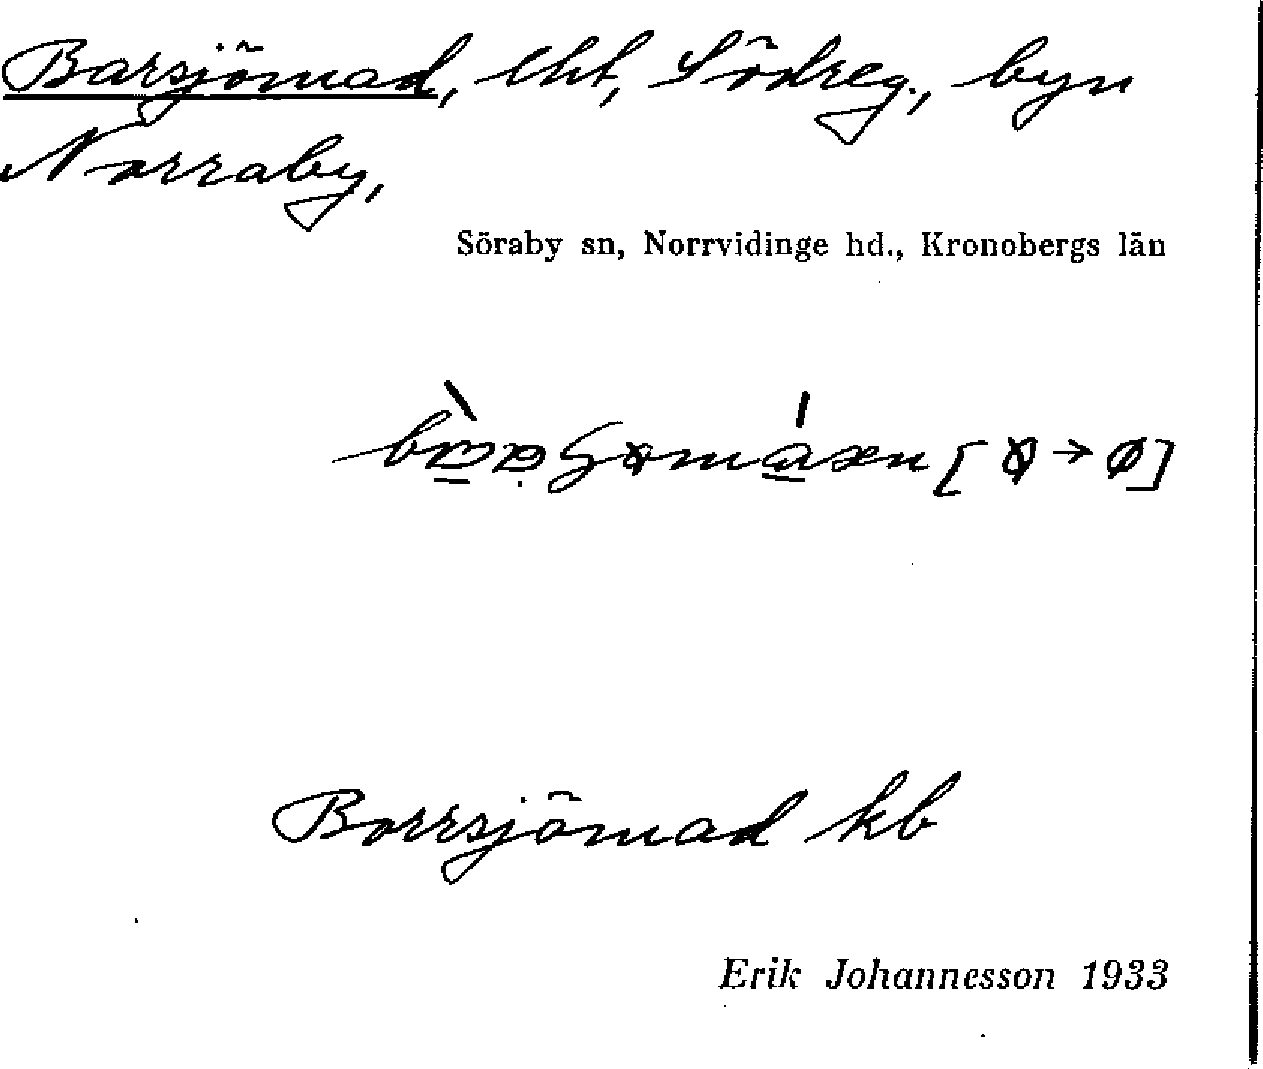 Barsjömad, lht, Södreg., byn
Norraby,
Söraby sn, Norrvidinge hd., Kronobergs län
Borrsjömad kb
Erik Johannesson 1933